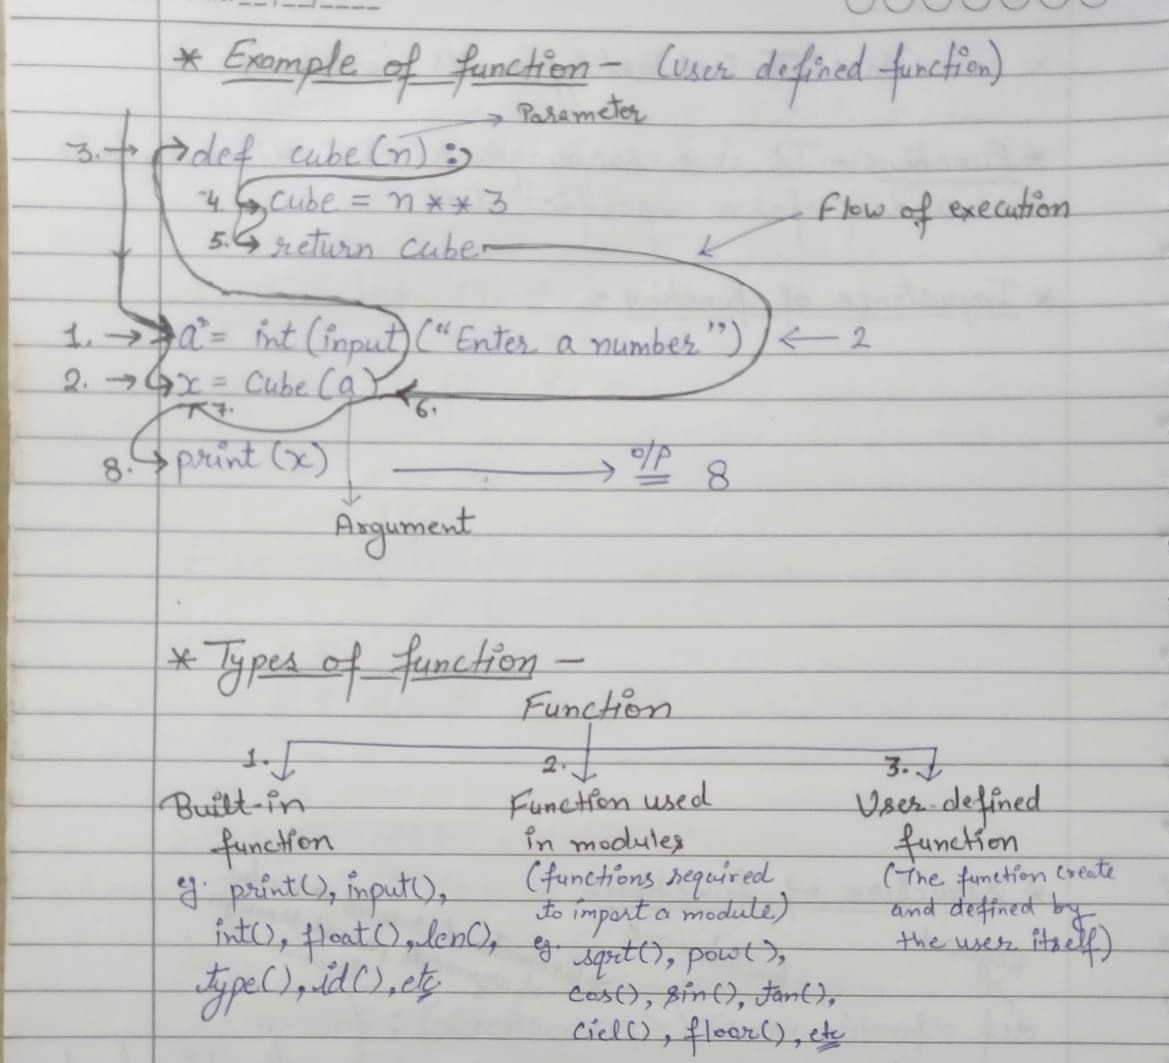 * Example of function - (user defined function)
Parameter
3. → def cube(n):
4. cube = n ** 3
Flow of execution
5. return cube
1. → a = int(input)("Enter a number") ← 2
2. → x = cube(a)
7. 6.
8. print(x) → o/p 8
Argument
* Types of function -
Function
1. 2. 3.
Built-in Function used User-defined
function in modules function
eg. print(), input(), (functions required (The function create
to import a module) and defined by
int(), float(), len(), eg. sqrt(), pow(), the user itself)
type(), id(), etc
cos(), sin(), tan(),
ciel(), floor(), etc